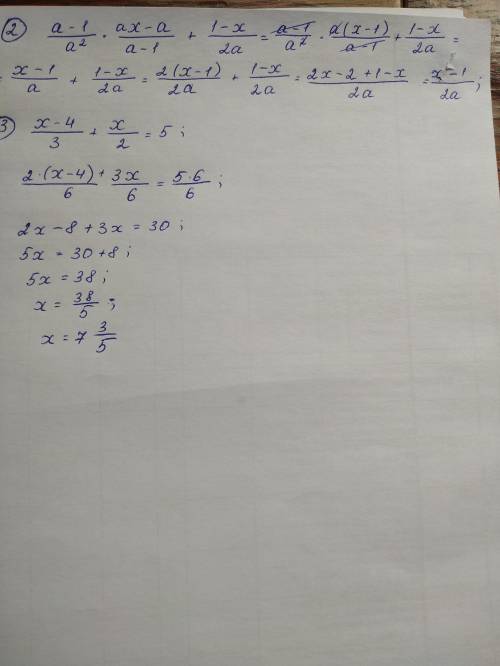 2) (a-1)/a² · (ax-a)/(a-1) + (1-x)/2a = (a-1)/a² · a(x-1)/(a-1) + (1-x)/2a =
= (x-1)/a + (1-x)/2a = 2(x-1)/2a + (1-x)/2a = (2x-2+1-x)/2a = (x-1)/2a ;
3) (x-4)/3 + x/2 = 5 ;
2·(x-4)/6 + 3x/6 = 5·6/6 ;
2x - 8 + 3x = 30 ;
5x = 30 + 8 ;
5x = 38 ;
x = 38/5 ;
x = 7 3/5